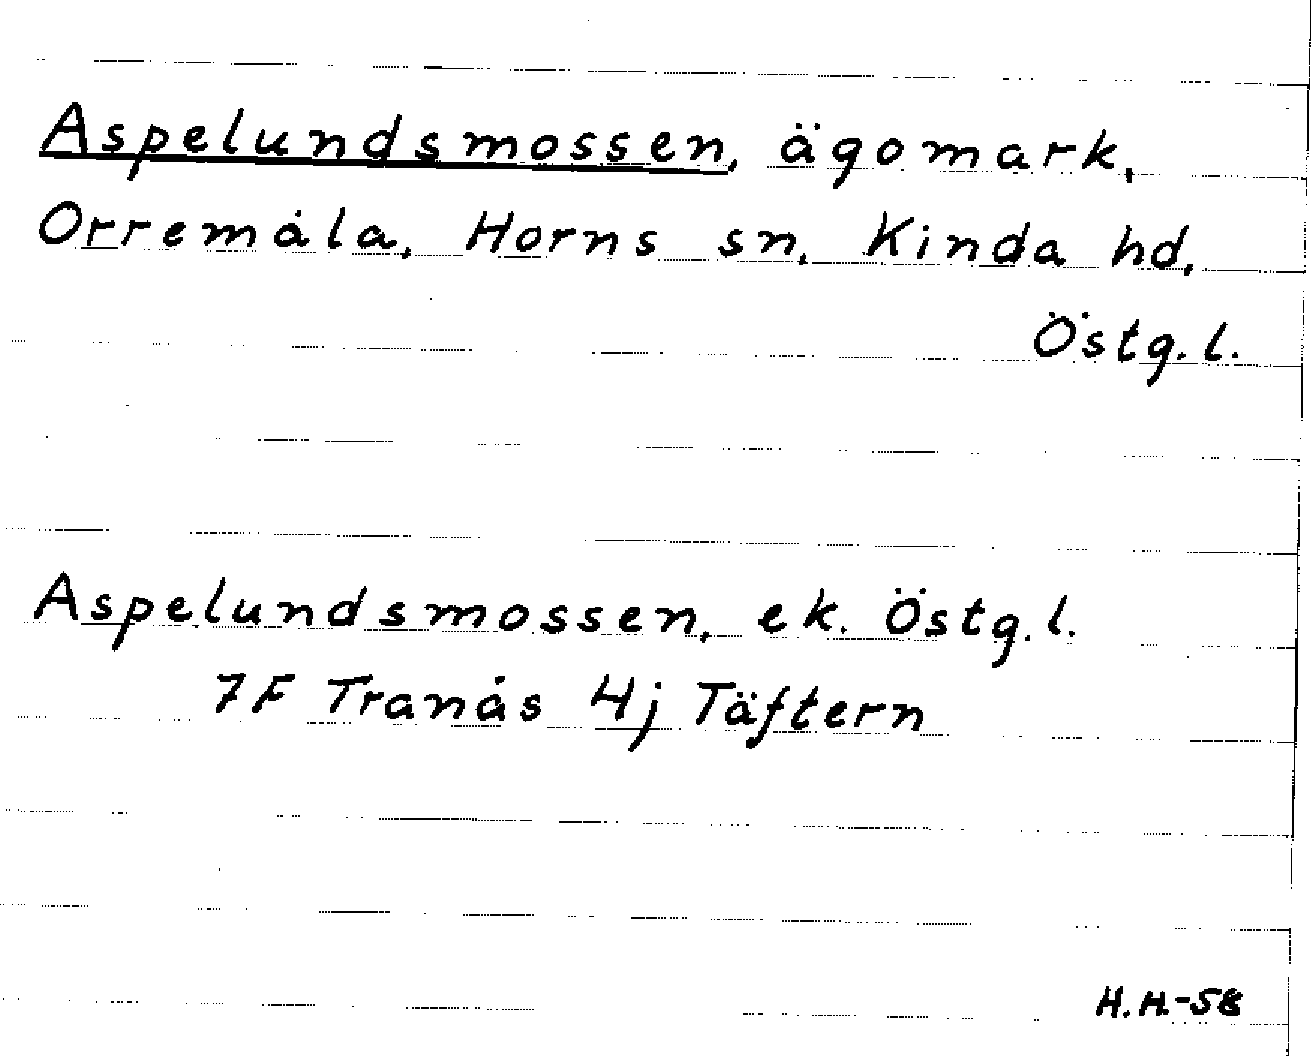 Aspelundsmossen, ägomark,
Orremåla, Horns sn, Kinda hd,
Östg. l.
Aspelundsmossen, ek. Östg. l.
7F Tranås 4j Täftern
H.H.-58